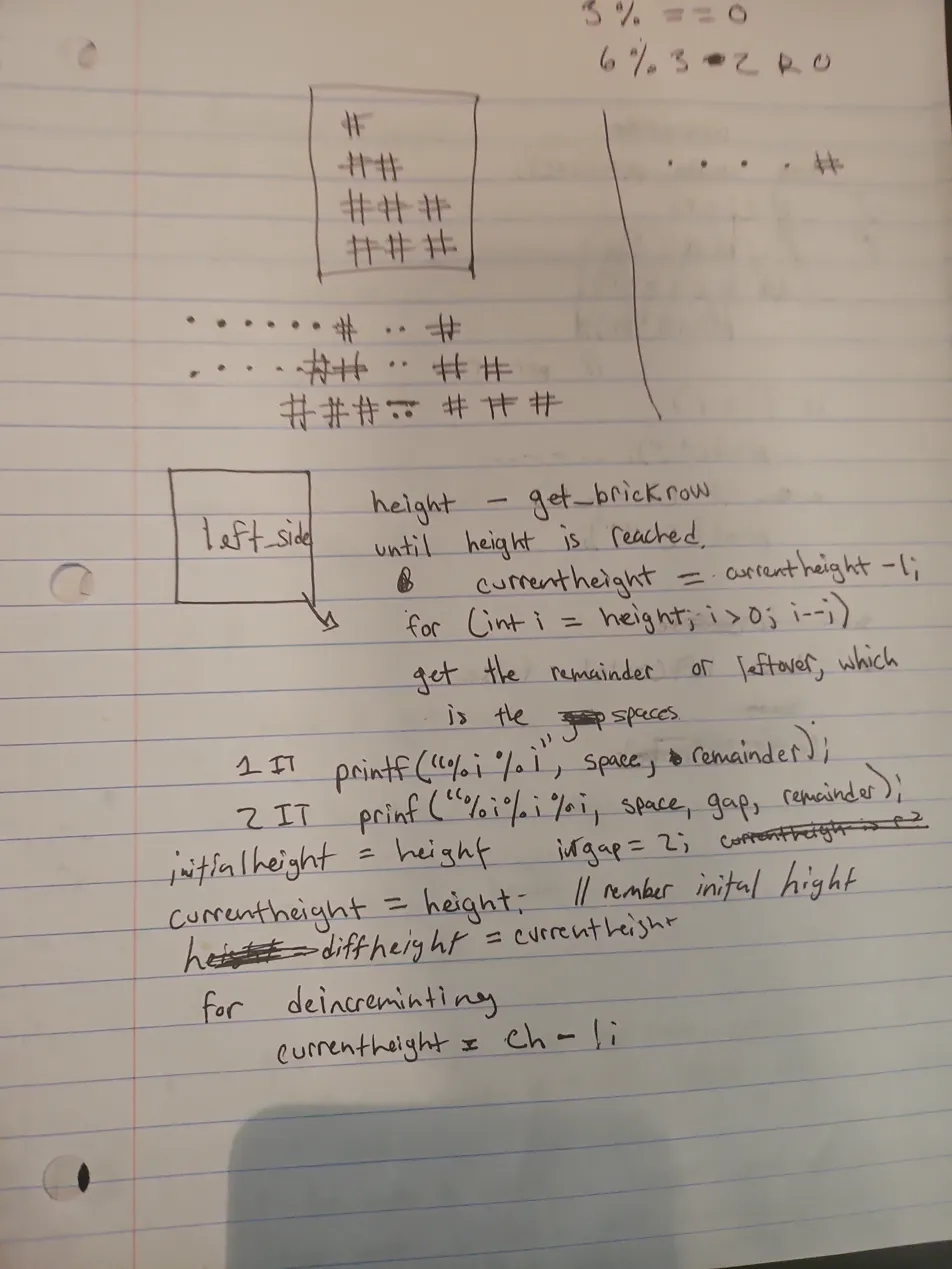 3 % = = 0
6 % 3 = 2 R 0
#
##
###
###
. . . . #
. . . . . . # . . #
. . . . ## . . ##
### . . ###
left_side
height - get_brickrow
until height is reached.
currentheight = currentheight - 1;
for (int i = height; i > 0; i--;)
get the remainder or leftover, which
is the spaces
1 IT printf("%i %i", space, remainder);
2 IT prinf("%i%i%i, space, gap, remainder);
initialheight = height int gap = 2;
currentheight = height; // rember inital hight
diffheight = currentheight
for deincreminting
currentheight = ch - 1;